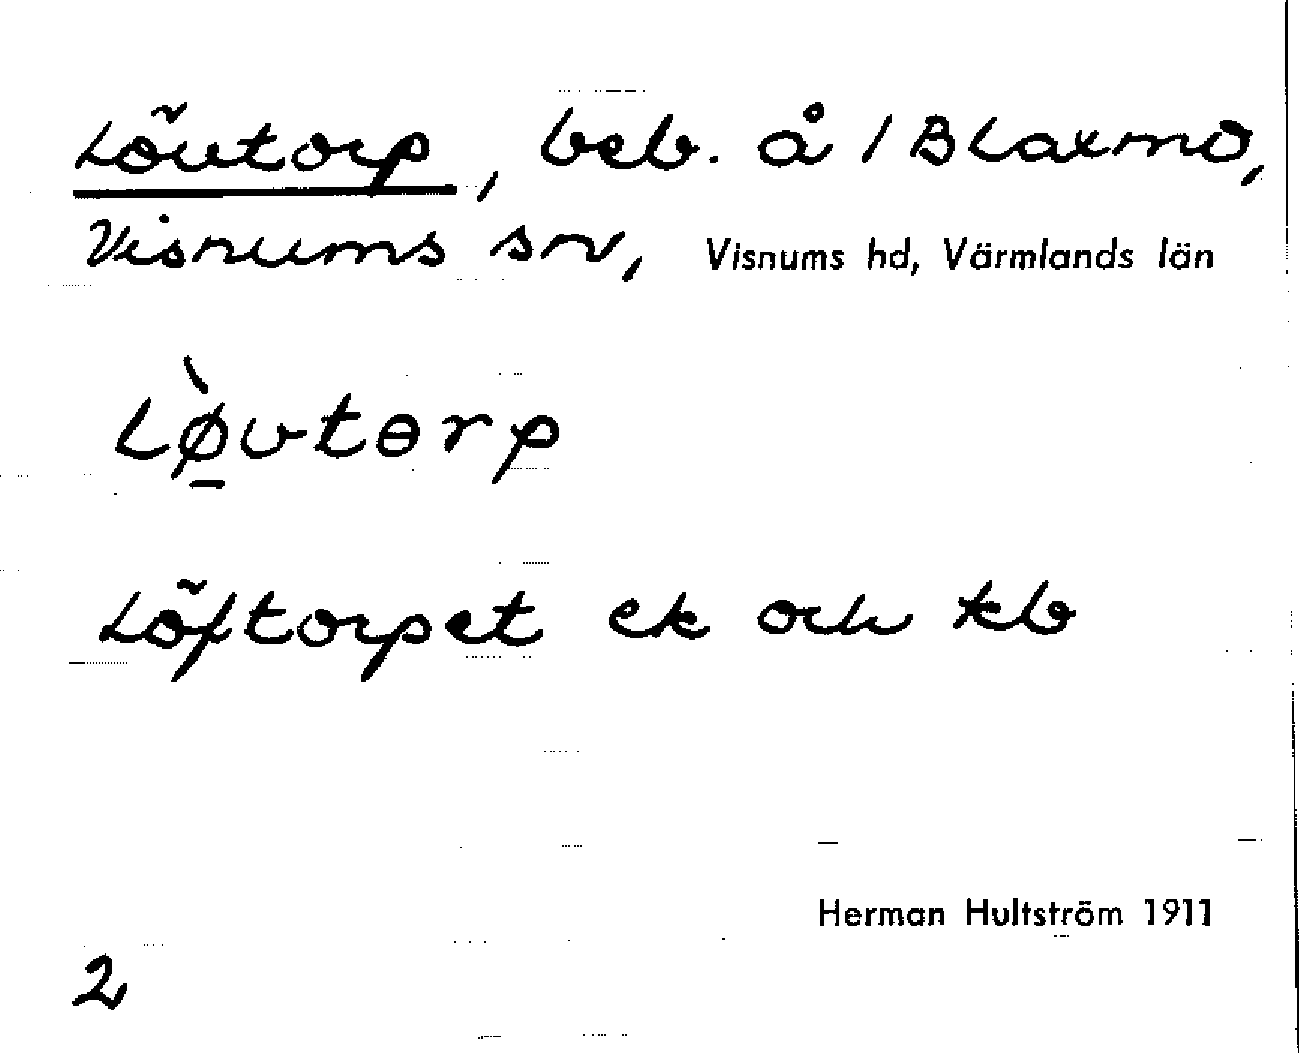 Lövtorp, beb. å 1 Blaxmo,
Visnums sn, Visnums hd, Värmlands län
Lø̀vtɵrp
Löftorpet ek och kb
Herman Hultström 1911
2